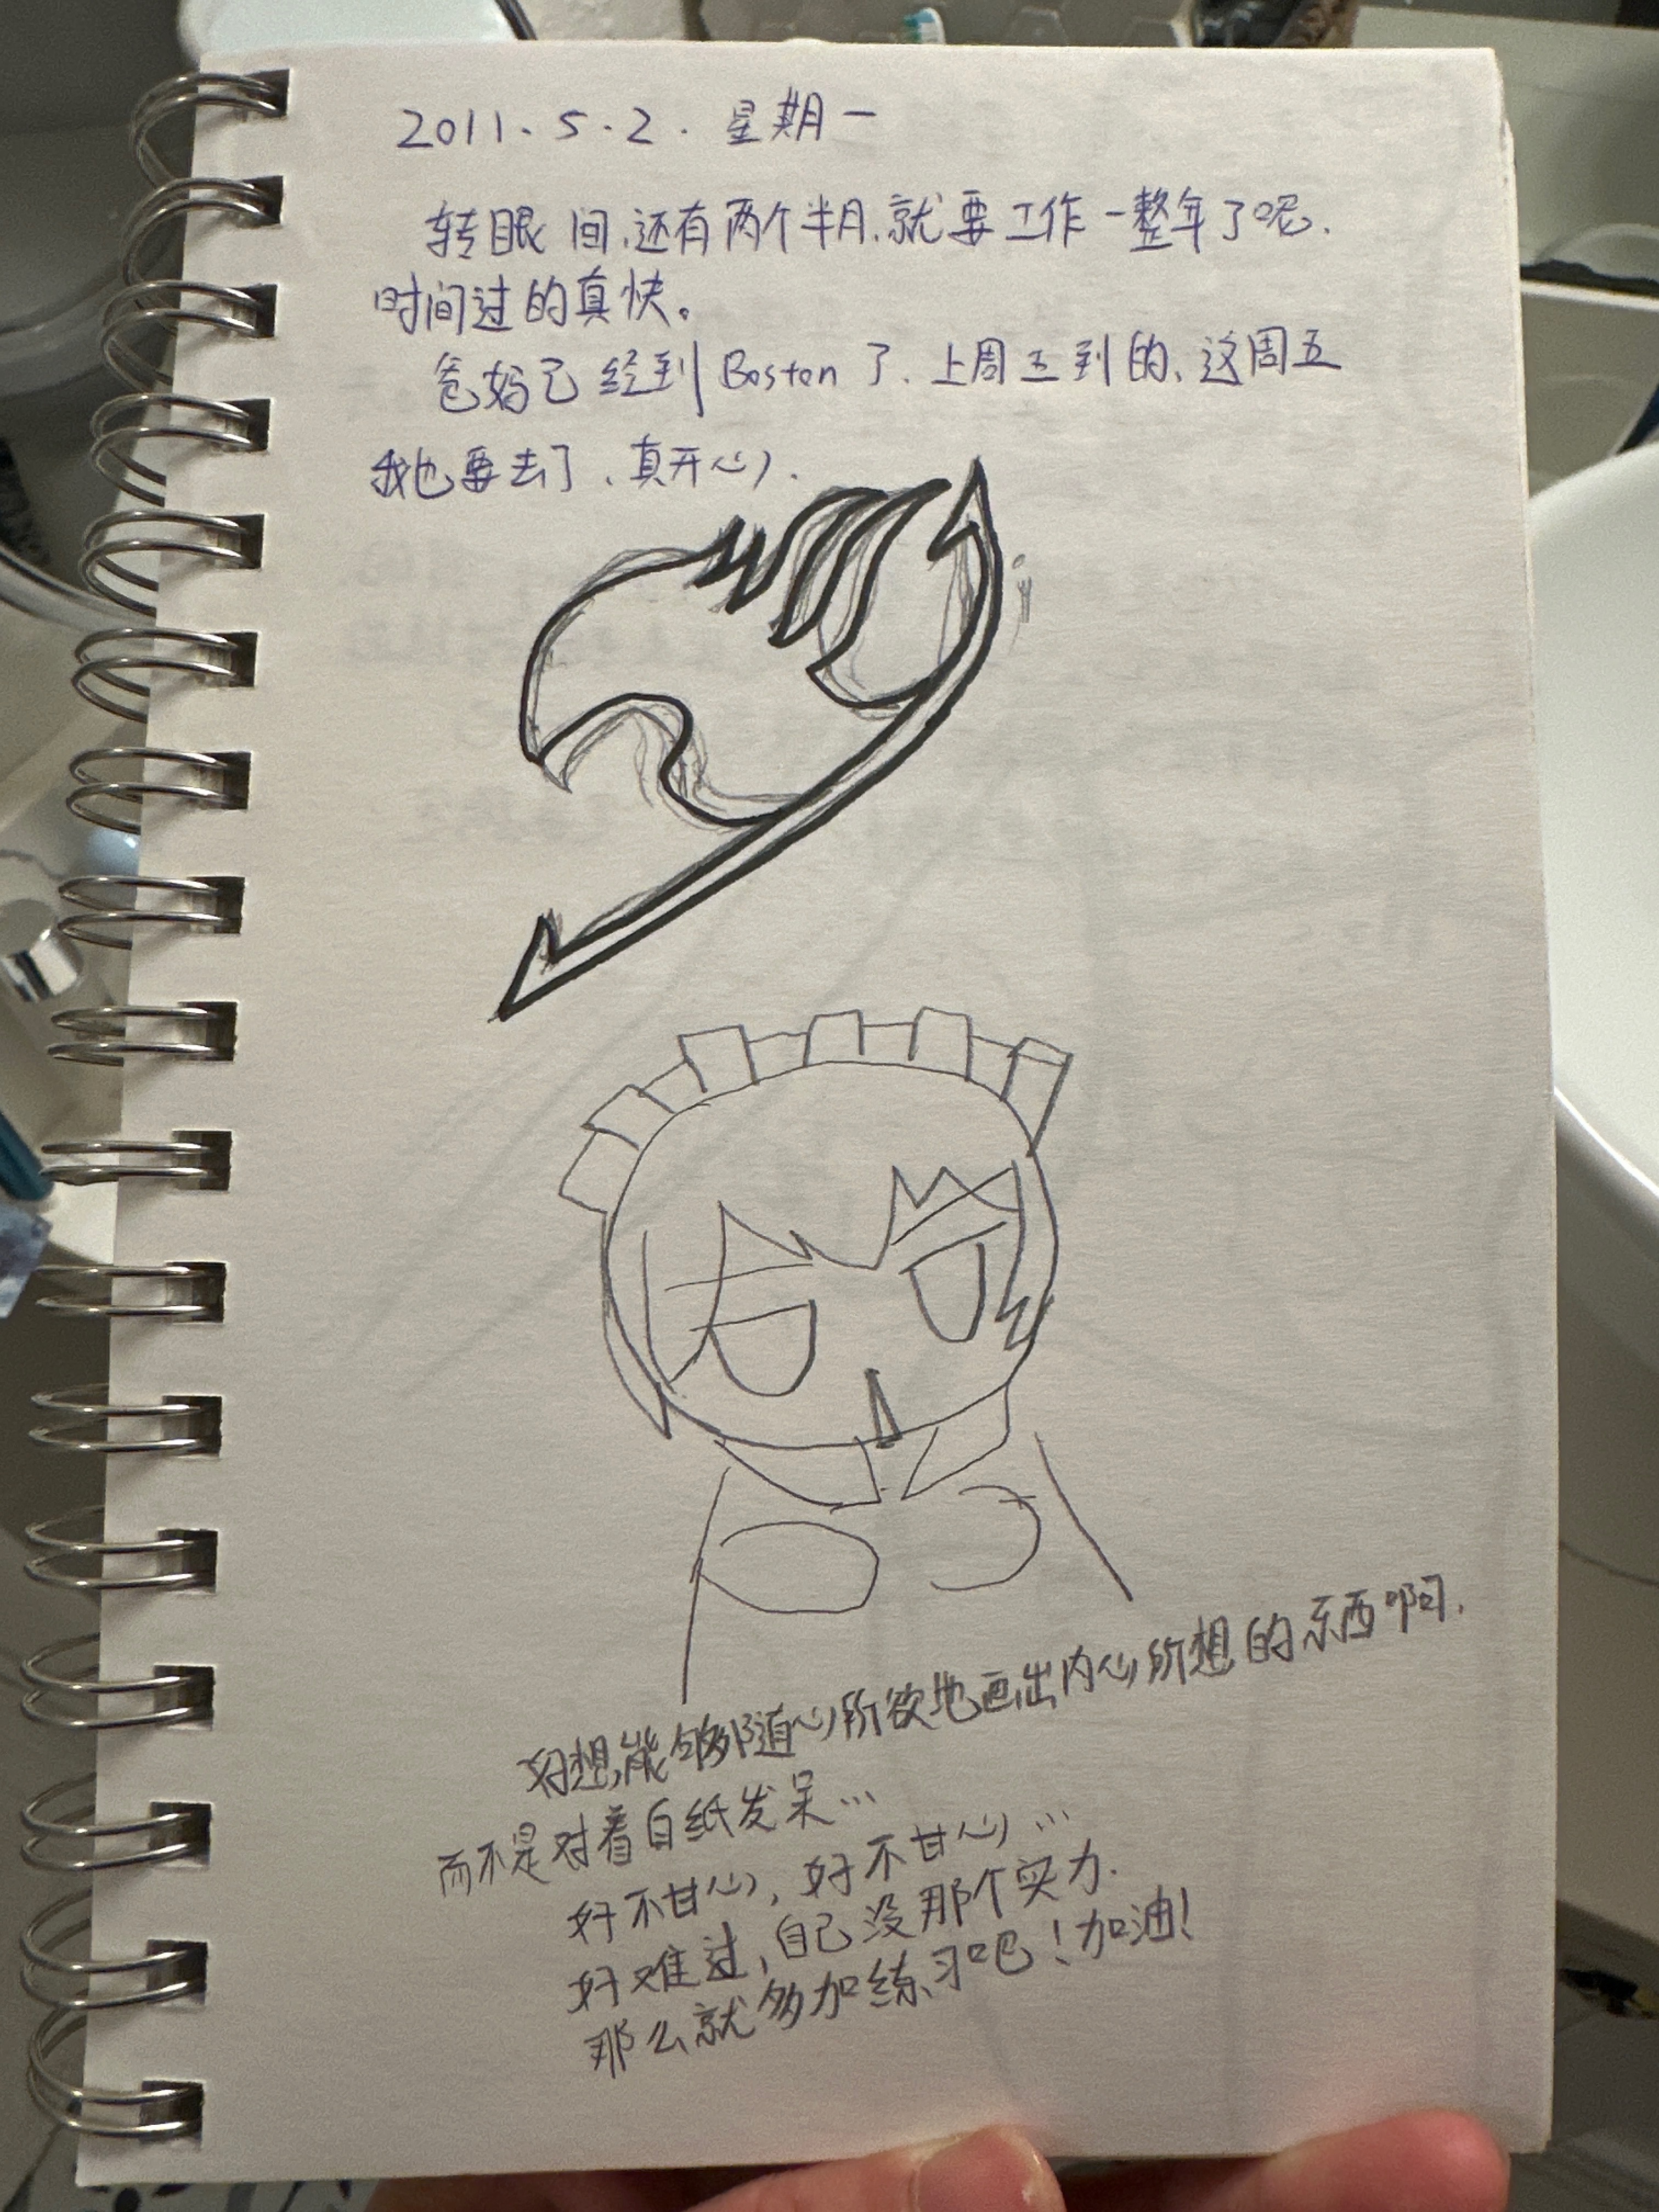 2011.5.2. 星期一
转眼间,还有两个半月,就要工作一整年了呢.
时间过的真快。
爸妈已经到Boston了.上周五到的、这周五
我也要去了、真开心.
好想能够随心所欲地画出内心所想的东西啊.
而不是对着白纸发呆…
好不甘心,好不甘心…
好难过,自己没那个实力.
那么就多加练习吧!加油!